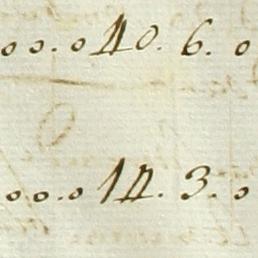 ..o.o 40. 6. o
.o.o.o 14. 3. o